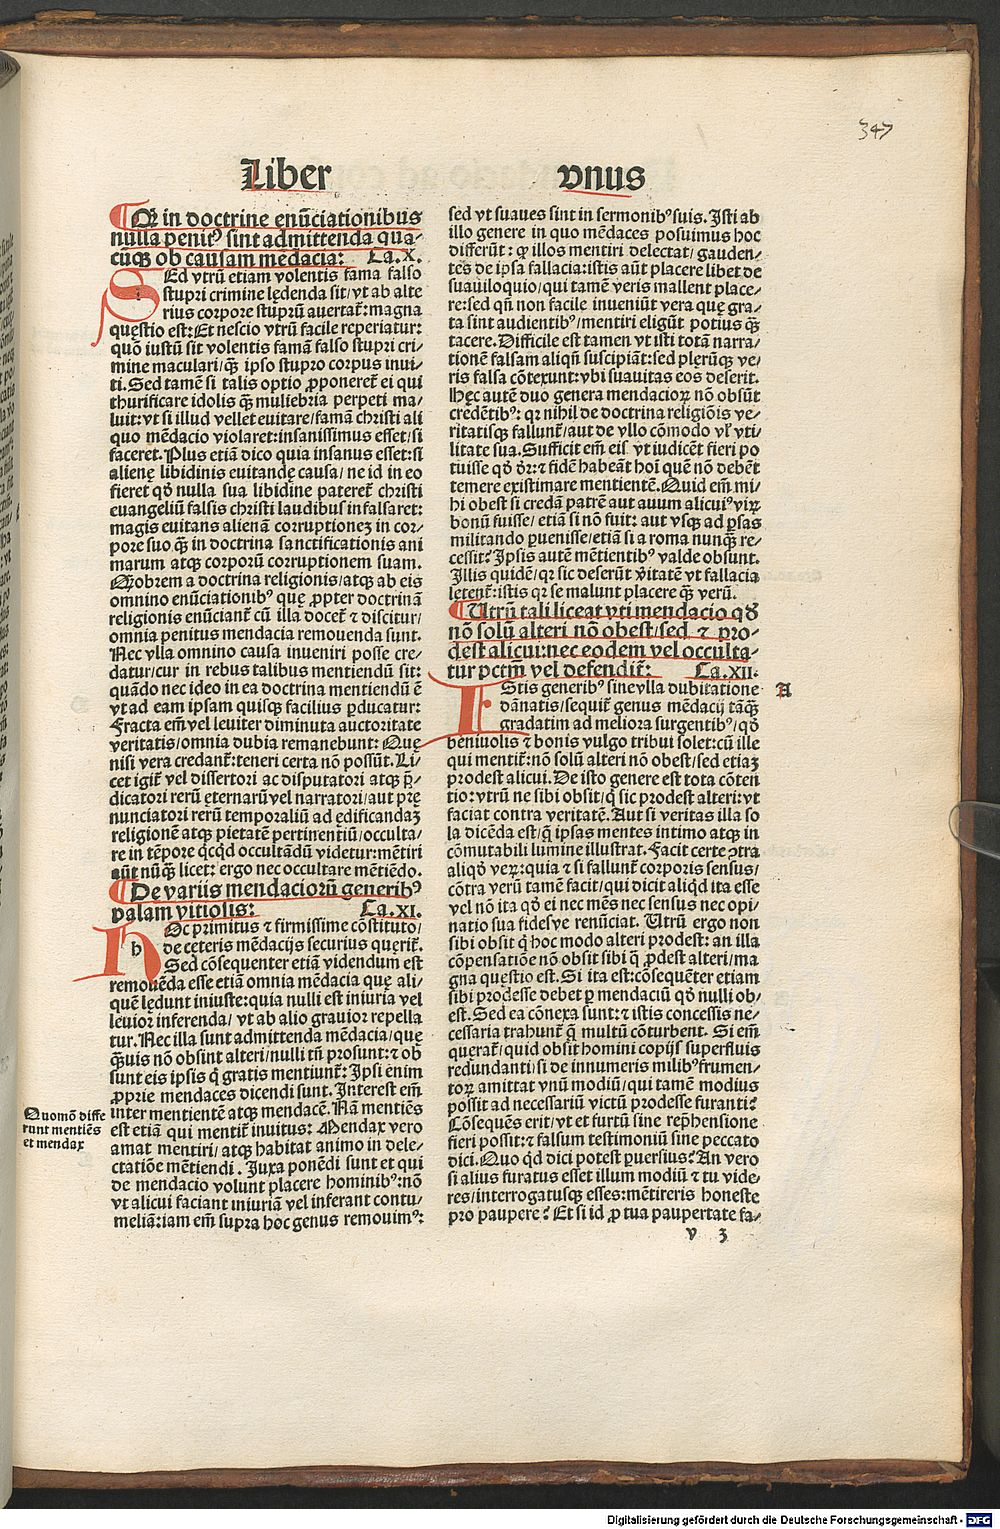 347
Liber vnus
¶ Qꝙ in doctrine enūciationibus
nulla penitꝰ sint admittenda qua⸗
cūqꝫ ob causam mēdacia: Ca.X.
SEd vtrū etiam volentis fama falso
stupri crimine lędenda sit/vt ab alte
rius corpore stuprū auertat᷑: magna
quęstio est: Et nescio vtrū facile reperiatur:
quō iustū sit volentis famā falso stupri cri⸗
mine maculari/ꝙ̄ ipso stupro corpus inui⸗
ti. Sed tamē si talis optio ꝓponeret᷑ ei qui
thurificare idolis ꝙ̄ muliebria perpeti ma⸗
luit: vt si illud vellet euitare/famā christi ali
quo mēdacio violaret: insanissimus esset/si
faceret. Plus etiā dico quia insanus esset: si
alienę libidinis euitandę causa/ne id in eo
fieret qď nulla sua libidine pateret᷑ christi
euangeliū falsis christi laudibus infalsaret:
magis euitans alienā corruptionez in cor⸗
pore suo ꝙ̄ in doctrina sanctificationis ani
marum atqꝫ corporū corruptionem suam.
Qobrem a doctrina religionis/atqꝫ ab eis
omnino enūciationibꝰ quę ꝓpter doctrinā
religionis enūciant᷑ cū illa docet᷑ ⁊ discitur/
omnia penitus mendacia remouenda sunt.
Nec vlla omnino causa inueniri posse cre⸗
datur/cur in rebus talibus mentiendū sit:
quādo nec ideo in ea doctrina mentiendū ē
vt ad eam ipsam quisqꝫ facilius ꝑducatur:
Fracta em̄ vel leuiter diminuta auctoritate
veritatis/omnia dubia remanebunt: Quę
nisi vera credant᷑: teneri certa nō possūt. Li⸗
cet igit᷑ vel dissertori ac disputatori atqꝫ p̄⸗
dicatori rerū ęternarū vel narratori/aut prę
nunciatori rerū temporaliū ad edificandaꝫ
religionē atqꝫ pietatē pertinentiū/occulta⸗
re in tēpore qcqd occultādū videtur: mētiri
aūt nūꝙ̄ licet: ergo nec occultare mētiēdo.
¶ De variis mendaciorū generibꝰ
palam vitiosis: Ca.XI.
HOc primitus ⁊ firmissime cōstituto/
h de ceteris mēdacijs securius querit᷑.
Sed cōsequenter etiā videndum est
remouēda esse etiā omnia mēdacia quę ali⸗
quē lędunt iniuste: quia nulli est iniuria vel
leuior inferenda/vt ab alio grauior repella
tur. Nec illa sunt admittenda mēdacia/quę
ꝙ̄uis nō obsint alteri/nulli tn̄ prosunt: ⁊ ob
sunt eis ipsis q̇ gratis mentiunt᷑: Ipsi enim
ꝓprie mendaces dicendi sunt. Interest em̄
inter mentientē atqꝫ mendacē. Nā mentiēs
est etiā qui mentit᷑ inuitus: Mendax vero
amat mentiri/atqꝫ habitat animo in dele⸗
ctatiōe mētiendi. Iuxa ponēdi sunt et qui
de mendacio volunt placere hominibꝰ: nō
vt alicui faciant iniuriā vel inferant contu⸗
meliā: iam em̄ supra hoc genus remouimꝰ:
Quomō diffe
runt mentiēs
et mendax
sed vt suaues sint in sermonibꝰ suis. Isti ab
illo genere in quo mēdaces posuimus hoc
differūt: ꝙ illos mentiri delectat/gauden⸗
tes de ipsa fallacia: istis aūt placere libet de
suauiloquio/qui tamē veris mallent place⸗
re: sed qn̄ non facile inueniūt vera quę gra⸗
ta sint audientibꝰ/mentiri eligūt potius ꝙ̄
tacere. Difficile est tamen vt isti totā narra⸗
tionē falsam aliqn̄ suscipiāt: sed plerūqꝫ ve⸗
ris falsa cōtexunt: vbi suauitas eos deserit.
Hęc autē duo genera mendacioꝝ nō obsūt
credētibꝰ: qꝛ nihil de doctrina religiōis ve⸗
ritatisqꝫ fallunt᷑/aut de vllo cōmodo vl̓ vti⸗
litate sua. Sufficit em̄ eis vt iudicēt fieri po
tuisse qď dr̄: ⁊ fidē habeāt hoī quē nō debēt
temere existimare mentientē. Quid em̄ mi⸗
hi obest si credā patrē aut auum alicuiꝰ viꝝ
bonū fuisse/etiā si nō fuit: aut vsqꝫ ad ꝑsas
militando ꝑuenisse/etiā si a roma nunꝙ̄ re⸗
cessit? Ipsis autē mētientibꝰ valde obsunt.
Illis quidē/qꝛ sic deserūt v̓itatē vt fallacia
letent᷑: istis qꝛ se malunt placere ꝙ̄ verū.
¶ Utrū tali liceat vti mendacio qď
nō solū alteri nō obest/sed ⁊ pro⸗
dest alicui: nec eodem vel occulta⸗
tur pctm̄ vel defendit᷑: Ca.XII.
IStis generibꝰ sine vlla dubitatione
dānatis/sequit᷑ genus mēdacij tāꝙ̄
gradatim ad meliora surgentibꝰ/qď
beniuolis ⁊ bonis vulgo tribui solet: cū ille
qui mentit᷑: nō solū alteri nō obest/sed etiaꝫ
prodest alicui. De isto genere est tota cōten
tio: vtrū ne sibi obsit/q̇ sic prodest alteri: vt
faciat contra veritatē. Aut si veritas illa so
la dicēda est/q̄ ipsas mentes intimo atqꝫ in
cōmutabili lumine illustrat. Facit certe ꝯtra
aliqď veꝝ: quia ⁊ si fallunt᷑ corporis sensus/
cōtra verū tamē facit/qui dicit aliqd ita esse
vel nō ita qď ei nec mēs nec sensus nec opi⸗
natio sua fidesve renūciat. Utrū ergo non
sibi obsit q̇ hoc modo alteri prodest: an illa
cōpensatiōe nō obsit sibi q̄ ꝓdest alteri/ma
gna quęstio est. Si ita est: cōsequēter etiam
sibi prodesse debet ꝑ mendaciū qď nulli ob⸗
est. Sed ea cōnexa sunt: ⁊ istis concessis ne⸗
cessaria trahunt᷑ q̄ multū cōturbent. Si em̄
querat᷑/quid obsit homini copijs superfluis
redundanti/si de innumeris milibꝰ frumen⸗
toꝝ amittat vnū modiū/qui tamē modius
possit ad necessariū victū prodesse furanti?
Cōsequēs erit/vt et furtū sine rep̄hensione
fieri possit: ⁊ falsum testimoniū sine peccato
dici. Quo qd dici potest ꝑuersius? An vero
si alius furatus esset illum modiū ⁊ tu vide⸗
res/interrogatusqꝫ esses: mētireris honeste
pro paupere? Et si id ꝓ tua paupertate fa⸗
A
v 3
Digitalisierung gefördert durch die Deutsche Forschungsgemeinschaft - DFG